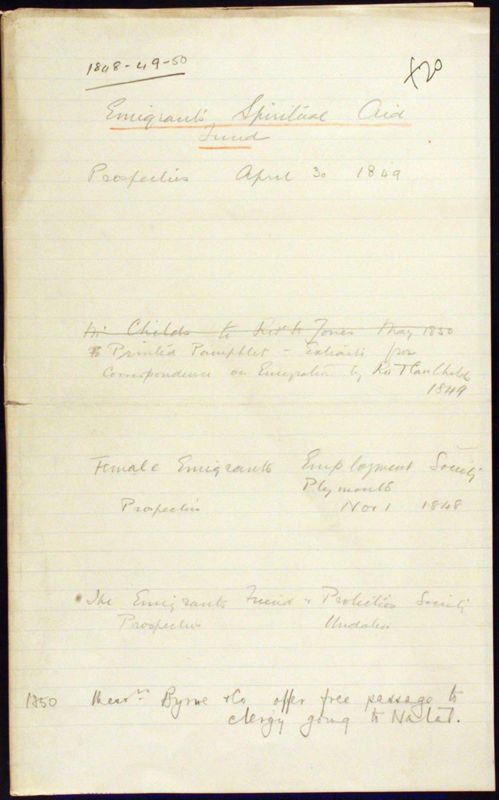 1848-49-50
Emigrants Spiritual Aid
Fund
Prospectus April 30 1849
Mr Childs to Jones May 1850
Printed Pamphlet - Extracts from
Correspondence on Emigration by Childs
1849
Female Emigrants Employment Society
Plymouth
Prospectus Nov 1 1848
The Emigrants Friend & Protection Society
Prospectus Undated
1850 Messrs Byrne & Co offer free passage to
clergy going to Natal.